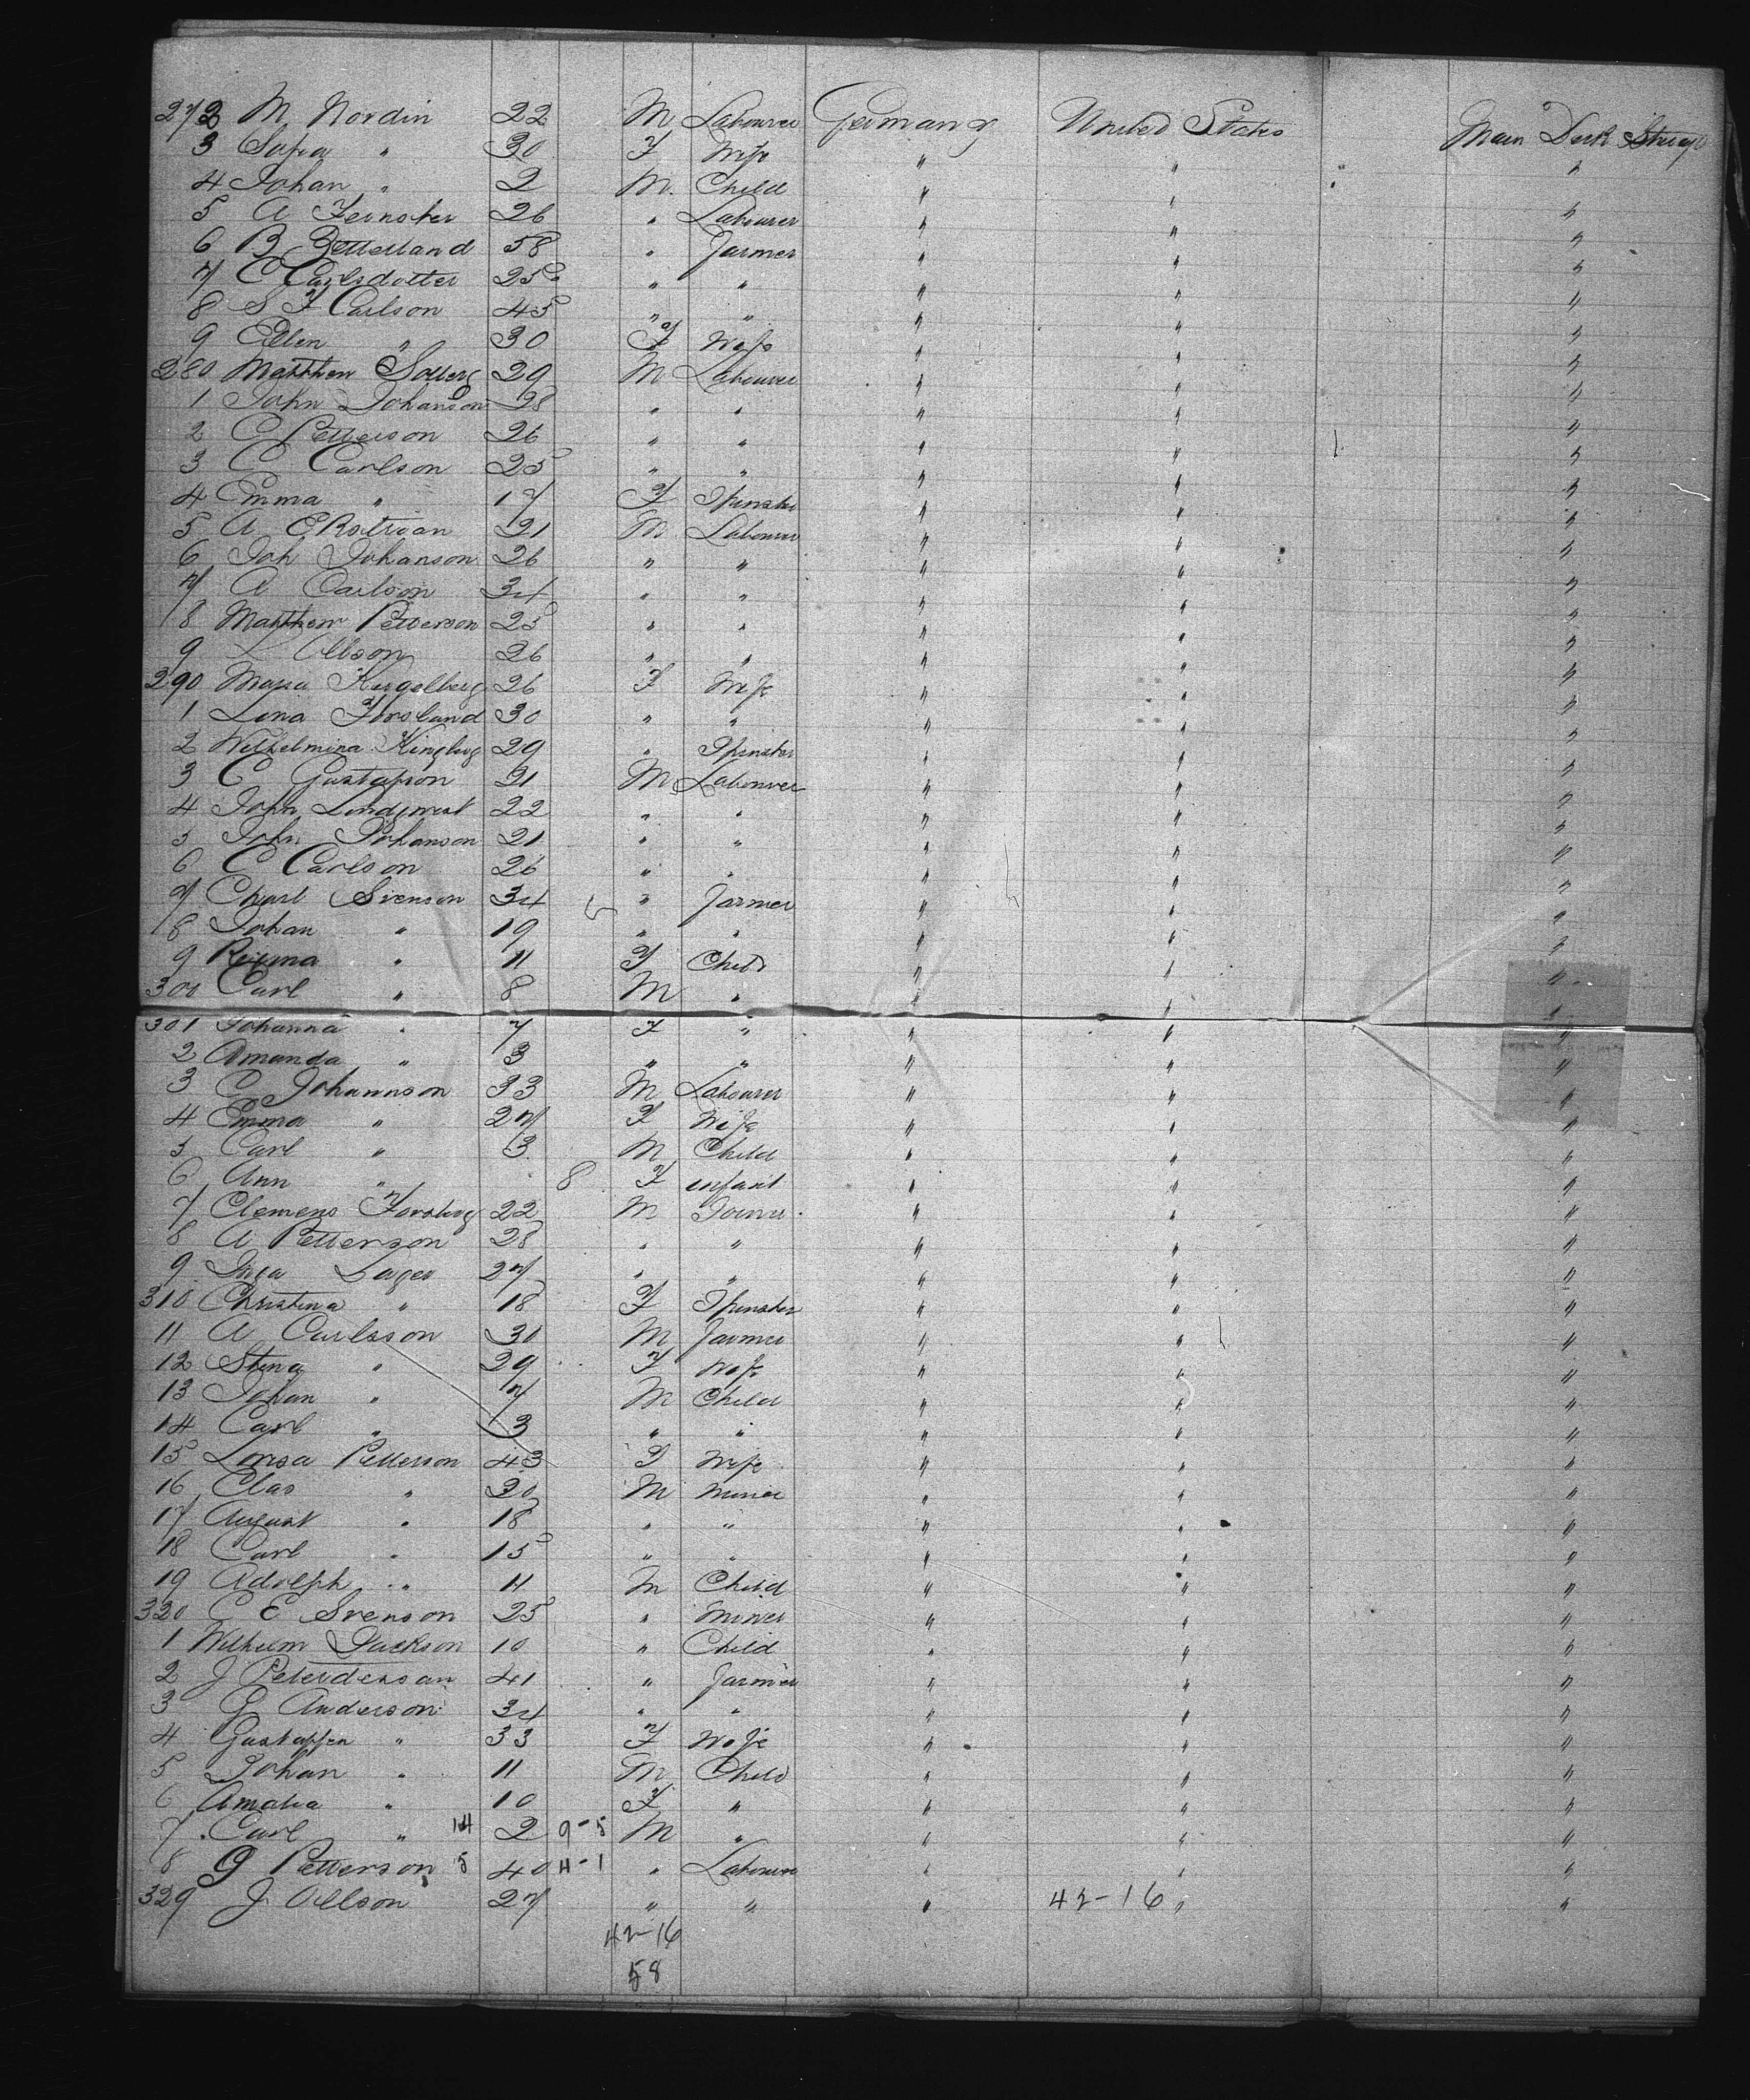 272 M. Nordin 22 M Labourer Germany United States Main Deck Steerage
3 Sofia " 30 F Wife " " "
4 Johan " 2 M. Child " " "
5 A 26 " Labourer " " "
6 B Zetterland 58 " Farmer " " "
7 C Carlsdotter 25 " " " " "
8 S F Carlson 45 " " " " "
9 Ellen " 30 F Wife " " "
280 Matthew Solberg 29 M Labourer " " "
1 John Johanson 28 " " " " "
2 C Petterson 26 " " " " "
3 C Carlson 25 " " " " "
4 Emma " 17 F Spinster " " "
5 A 21 M Labourer " " "
6 Joh Johanson 26 " " " " "
7 A Carlson 34 " " " " "
8 Matthew Petterson 25 " " " " "
9 L Ollson 26 " " " " "
290 Maria 26 F Wife " " "
1 Lena Forsland 30 " " " " "
2 Wilhelmina 29 " Spinster " " "
3 C Gustafson 21 M Labourer " " "
4 John 22 " " " " "
5 John Johanson 21 " " " " "
6 C Carlson 26 " " " " "
7 Charl Svenson 34 " Farmer " " "
8 Johan " 19 " " " " "
9 " 11 F Child " " "
300 Carl " 8 M " " " "
301 Johanna " 7 F " " " "
2 Amanda " 3 " " " " "
3 C Johannson 33 M Labourer " " "
4 Emma " 27 F Wife " " "
5 Carl " 3 M Child " " "
6 Ann " 8 F infant " " "
7 Clemens Forsberg 22 M " " "
8 A Petterson 28 " " " " "
9 Inga Lager 27 " " " " "
310 Christina " 18 F Spinster " " "
11 A Carlsson 30 M Farmer " " "
12 Stina " 29 F Wife " " "
13 Johan " 7 M Child " " "
14 Carl " 3 " " " " "
15 Lovisa Petterson 43 F Wife " " "
16 Clas " 20 M Miner " " "
17 August " 18 " " " " "
18 Carl " 15 " " " " "
19 Adolph " 11 M Child " " "
320 C E Svenson 25 " Miner " " "
1 Wilhelm Jackson 10 " Child " " "
2 J 41 " Farmer " " "
3 G Anderson 34 " " " " "
4 " 33 F Wife " " "
5 Johan " 11 M Child " " "
6 Amalia " 10 F " " " "
7 Carl " 14 2 9-5 M " " " "
8 G Petterson 5 40 4-1 " Labourer " " "
329 J Ollson 27 " " " 42-16 " "
42-16
58